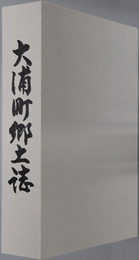 大浦町郷土誌